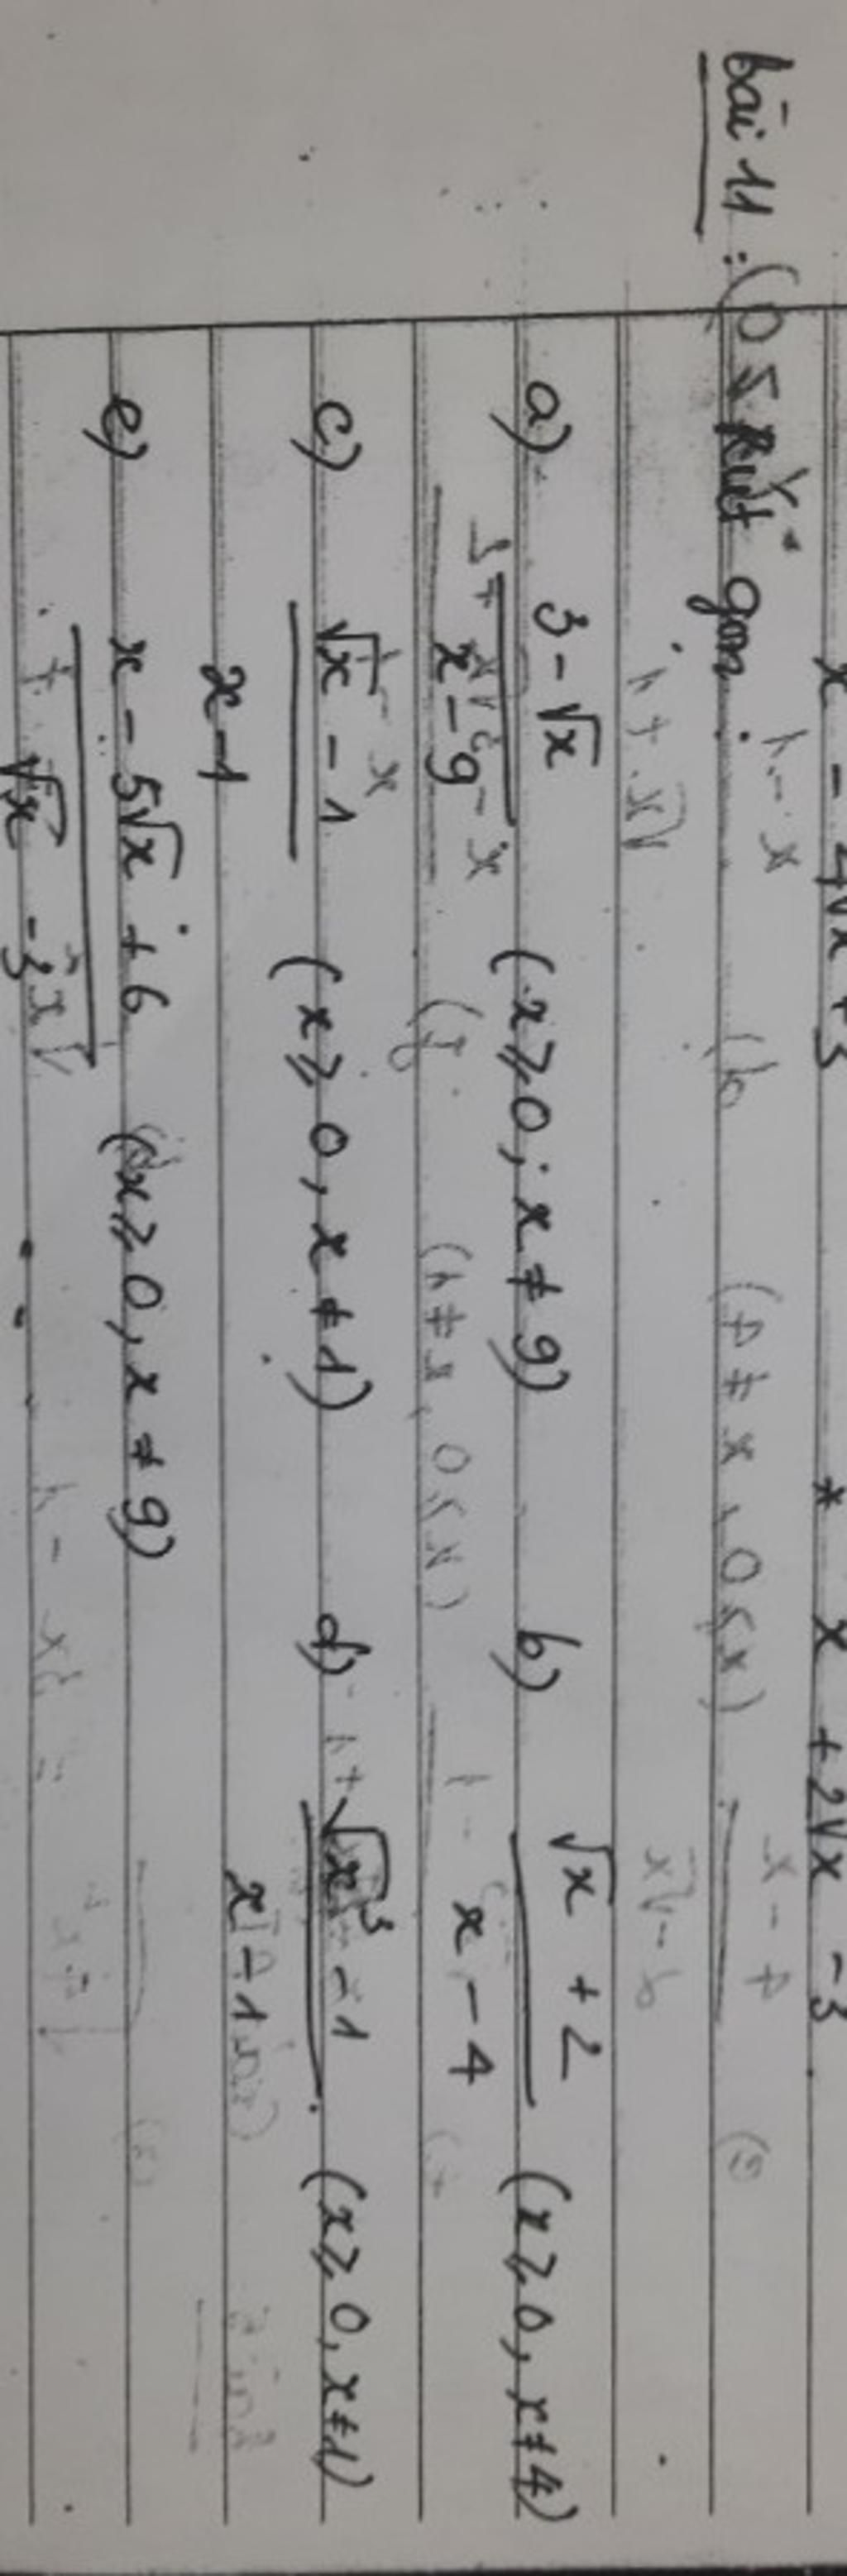 x - 4√x + 3 * x + 2√x - 3
bài 11 : Rút gọn
a) 3 - √x / x - 9 (x ≥ 0 ; x ≠ 9) b) √x + 2 / x - 4 (x ≥ 0, x ≠ 4)
c) √x - 1 / x - 1 (x ≥ 0, x ≠ 1) d) √x³ - 1 / x - 1 (x ≥ 0, x ≠ 1)
e) x - 5√x + 6 / √x - 3 (x ≥ 0, x ≠ 9)